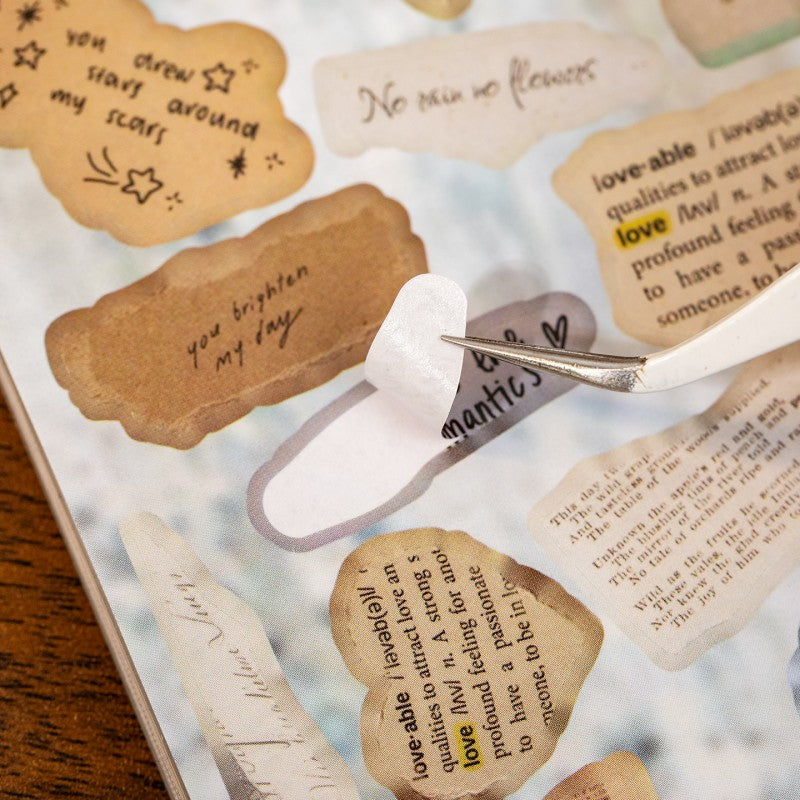 you drew
stars around
my scars
No rain no flowers
love·able /'lovəb(ə
qualities to attract lov
love /lʌv/ n. A st
profound feeling
to have a pass
someone, to b
you brighten
my day
mantic
This day, tw
The wild grap
And tasteless groun
The table of the woods supplied.
Unknown the apple's red and gold,
The blushing tints of peach and pe
The mirror of the river told
No tale of orchards ripe and ra
Wild as the fruits he scorned
These vales, the idle Indian
Nor knew the glad creativ
The joy of him who to
love·able /'ləvəb(ə)l/,
qualities to attract love an
love /lʌv/ n. A strong s
profound feeling for anot
to have a passionate
meone, to be in lo